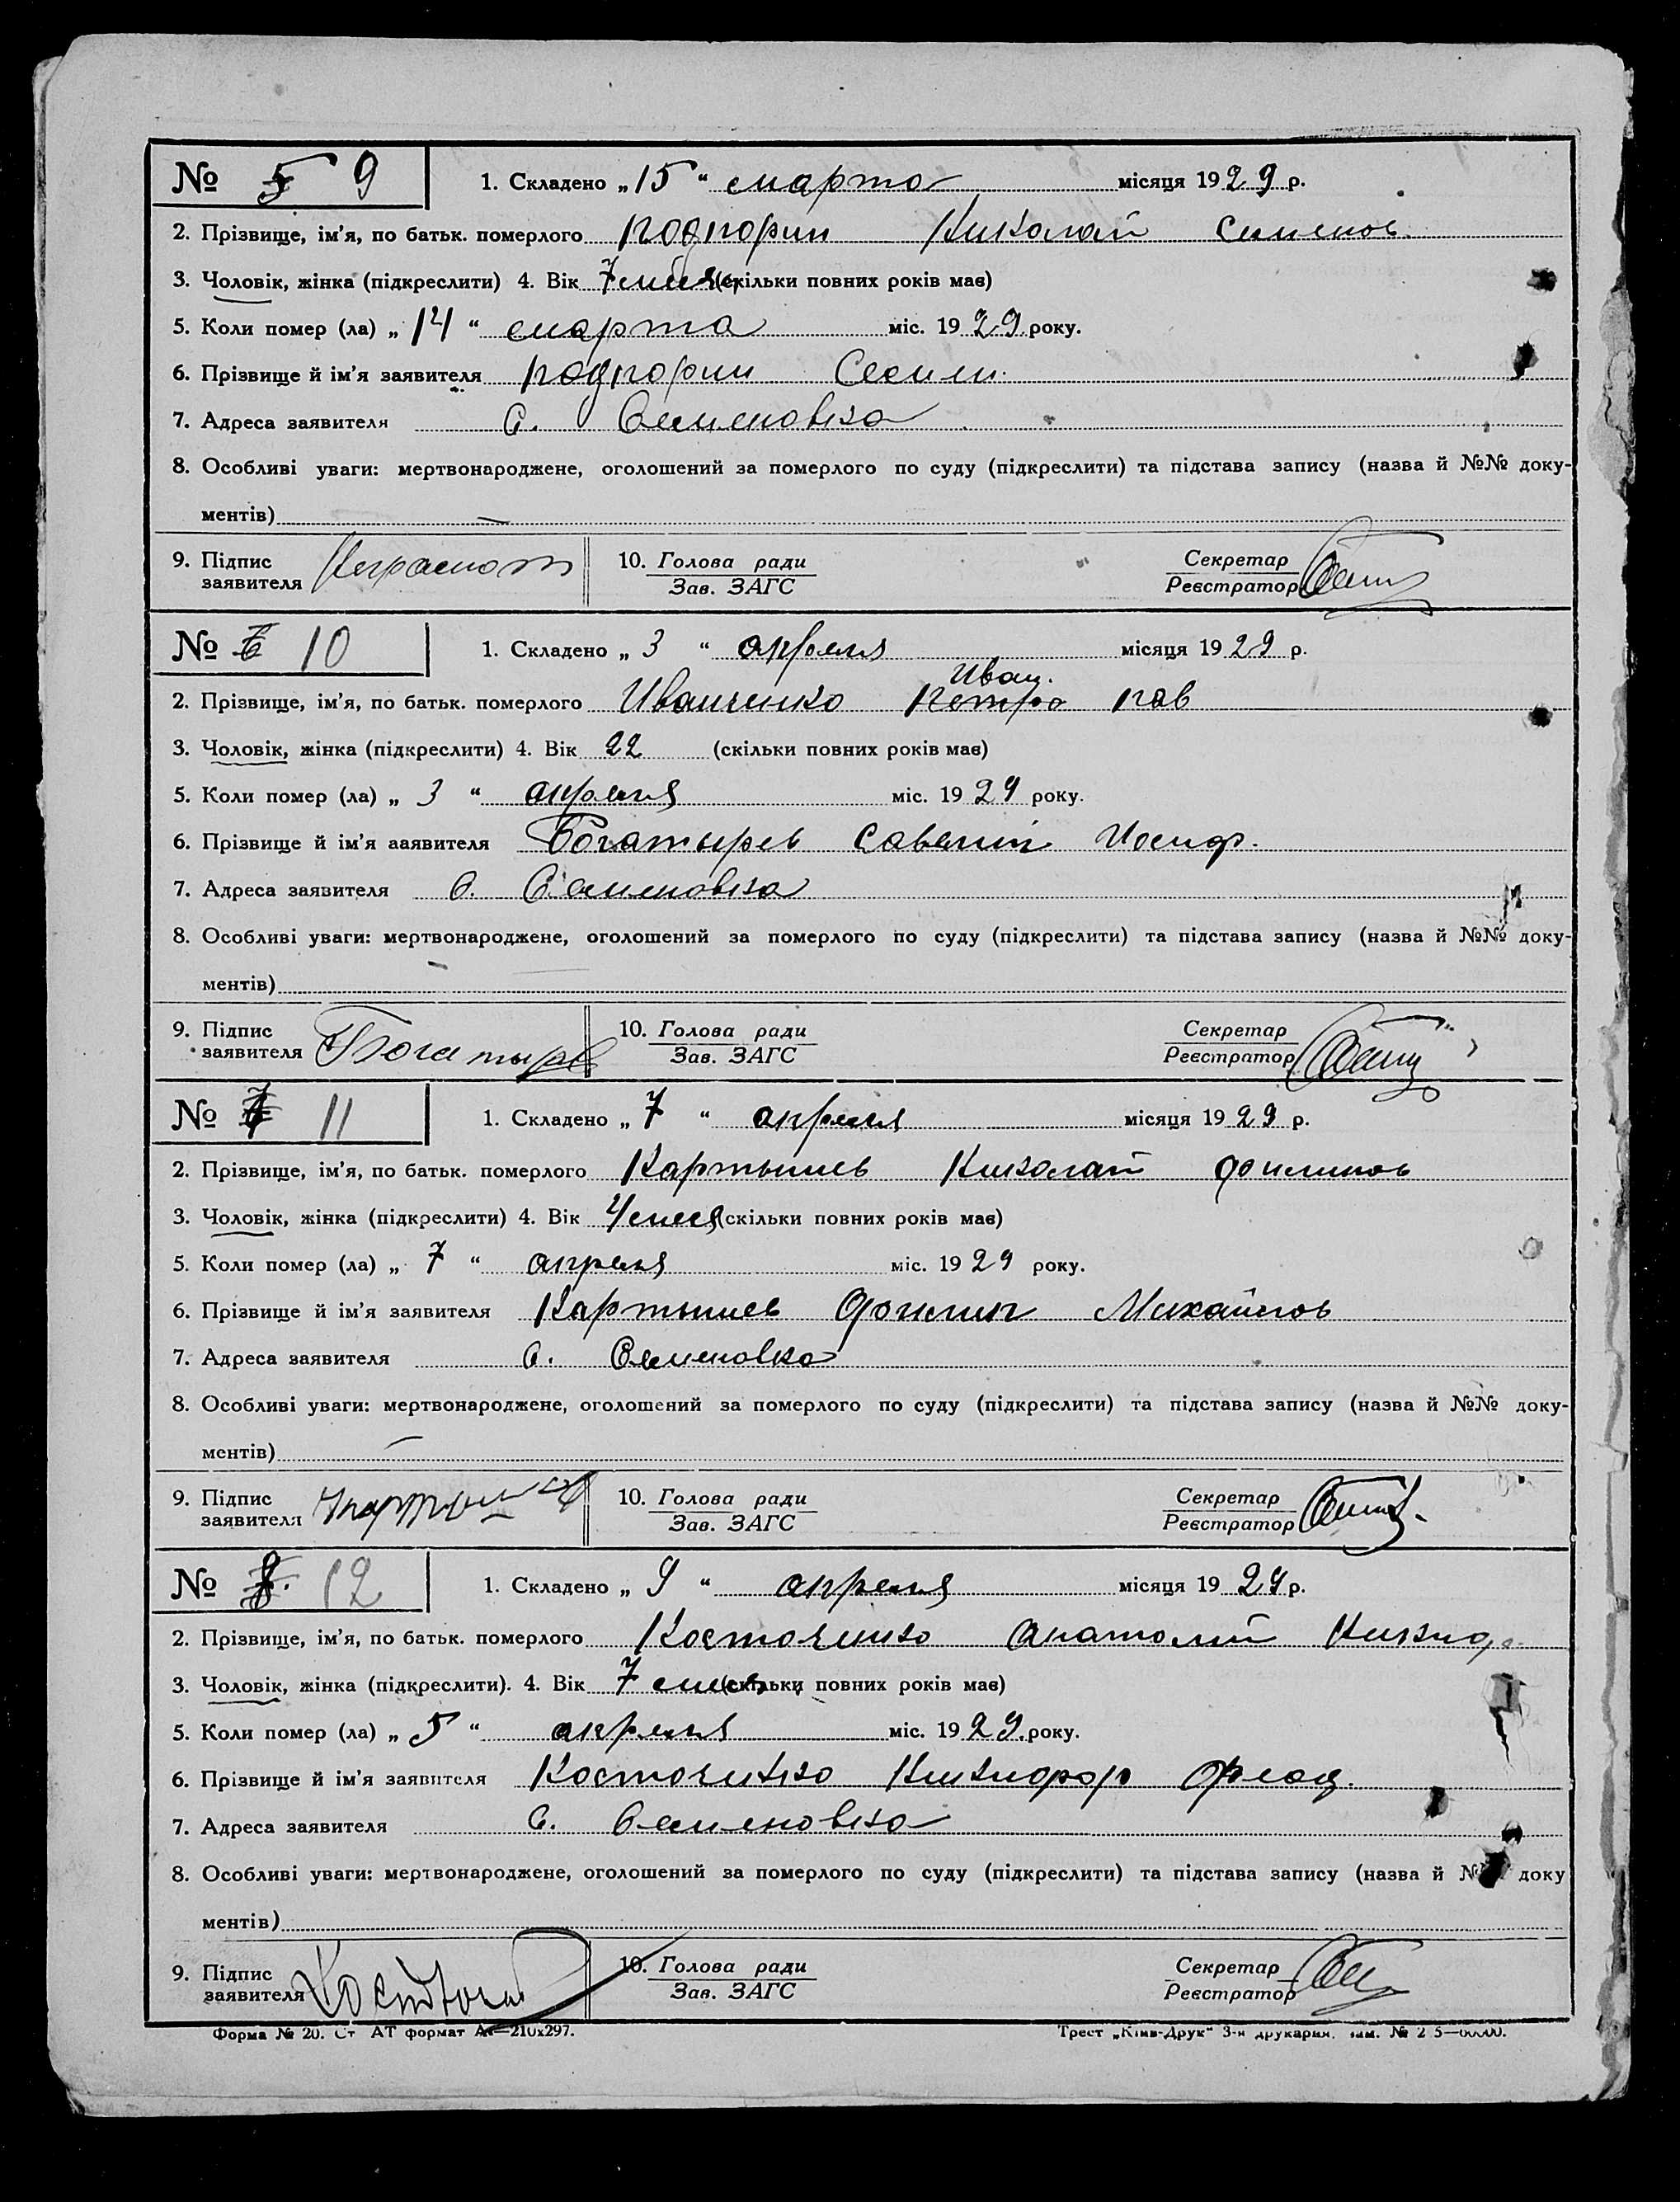 № 5 9 1. Складено „ 15 “ марта місяця 1929 р.
2. Прізвище, ім’я, по батьк. померлого Подгорни Николай Семенов.
3. Чоловік, жінка (підкреслити) 4. Вік 7 (скільки повних років має)
5. Коли помер (ла) „ 14 “ марта міс. 1929 року.
6. Прізвище й ім’я заявителя Подгорни
7. Адреса заявителя С. Семеновка
8. Особливі уваги: мертвонароджене, оголошений за померлого по суду (підкреслити) та підстава запису (назва й №№ доку-
ментів) —
9. Підпис заявителя Неграмот 10. Голова ради Зав. ЗАГС Секретар Реєстратор
№ 6 10 1. Складено „ 3 “ апреля місяця 1929 р.
Иван.
2. Прізвище, ім’я, по батьк. померлого Иванченко Петро пав
3. Чоловік, жінка (підкреслити) 4. Вік 22 (скільки повних років має)
5. Коли помер (ла) „ 3 “ апреля міс. 1929 року.
6. Прізвище й ім’я ааявителя Богатырев Савелий Иосиф.
7. Адреса заявителя С. Семеновка
8. Особливі уваги: мертвонароджене, оголошений за померлого по суду (підкреслити) та підстава запису (назва й №№ доку-
ментів) —
9. Підпис заявителя Богатырев 10. Голова ради Зав. ЗАГС Секретар Реєстратор
№ 7 11 1. Складено „ 7 “ апреля місяця 1929 р.
2. Прізвище, ім’я, по батьк. померлого Картышев Николай Филипов
3. Чоловік, жінка (підкреслити) 4. Вік 4 меся (скільки повних років має)
5. Коли помер (ла) „ 7 “ апреля міс. 1929 року.
6. Прізвище й ім’я заявителя Картышев Филип Михайлов
7. Адреса заявителя С. Семеновка
8. Особливі уваги: мертвонароджене, оголошений за померлого по суду (підкреслити) та підстава запису (назва й №№ доку-
ментів) —
9. Підпис заявителя 10. Голова ради Зав. ЗАГС Секретар Реєстратор
№ 8. 12 1. Складено „ 9 “ апреля місяця 1929 р.
2. Прізвище, ім’я, по батьк. померлого Косточенко Анатолий
3. Чоловік, жінка (підкреслити). 4. Вік 7 (скільки повних років має)
5. Коли помер (ла) „ 5 “ апреля міс. 1929. року.
6. Прізвище й ім’я заявителя Косточенко Никифор
7. Адреса заявителя С. Семеновка
8. Особливі уваги: мертвонароджене, оголошений за померлого по суду (підкреслити) та підстава запису (назва й доку
ментів)
9. Підпис заявителя 10. Голова ради Зав. ЗАГС Секретар Реєстратор
Форма № 20. Ст АТ формат А4—210х297. Трест „Київ-Друк“ 3-я друкарня.